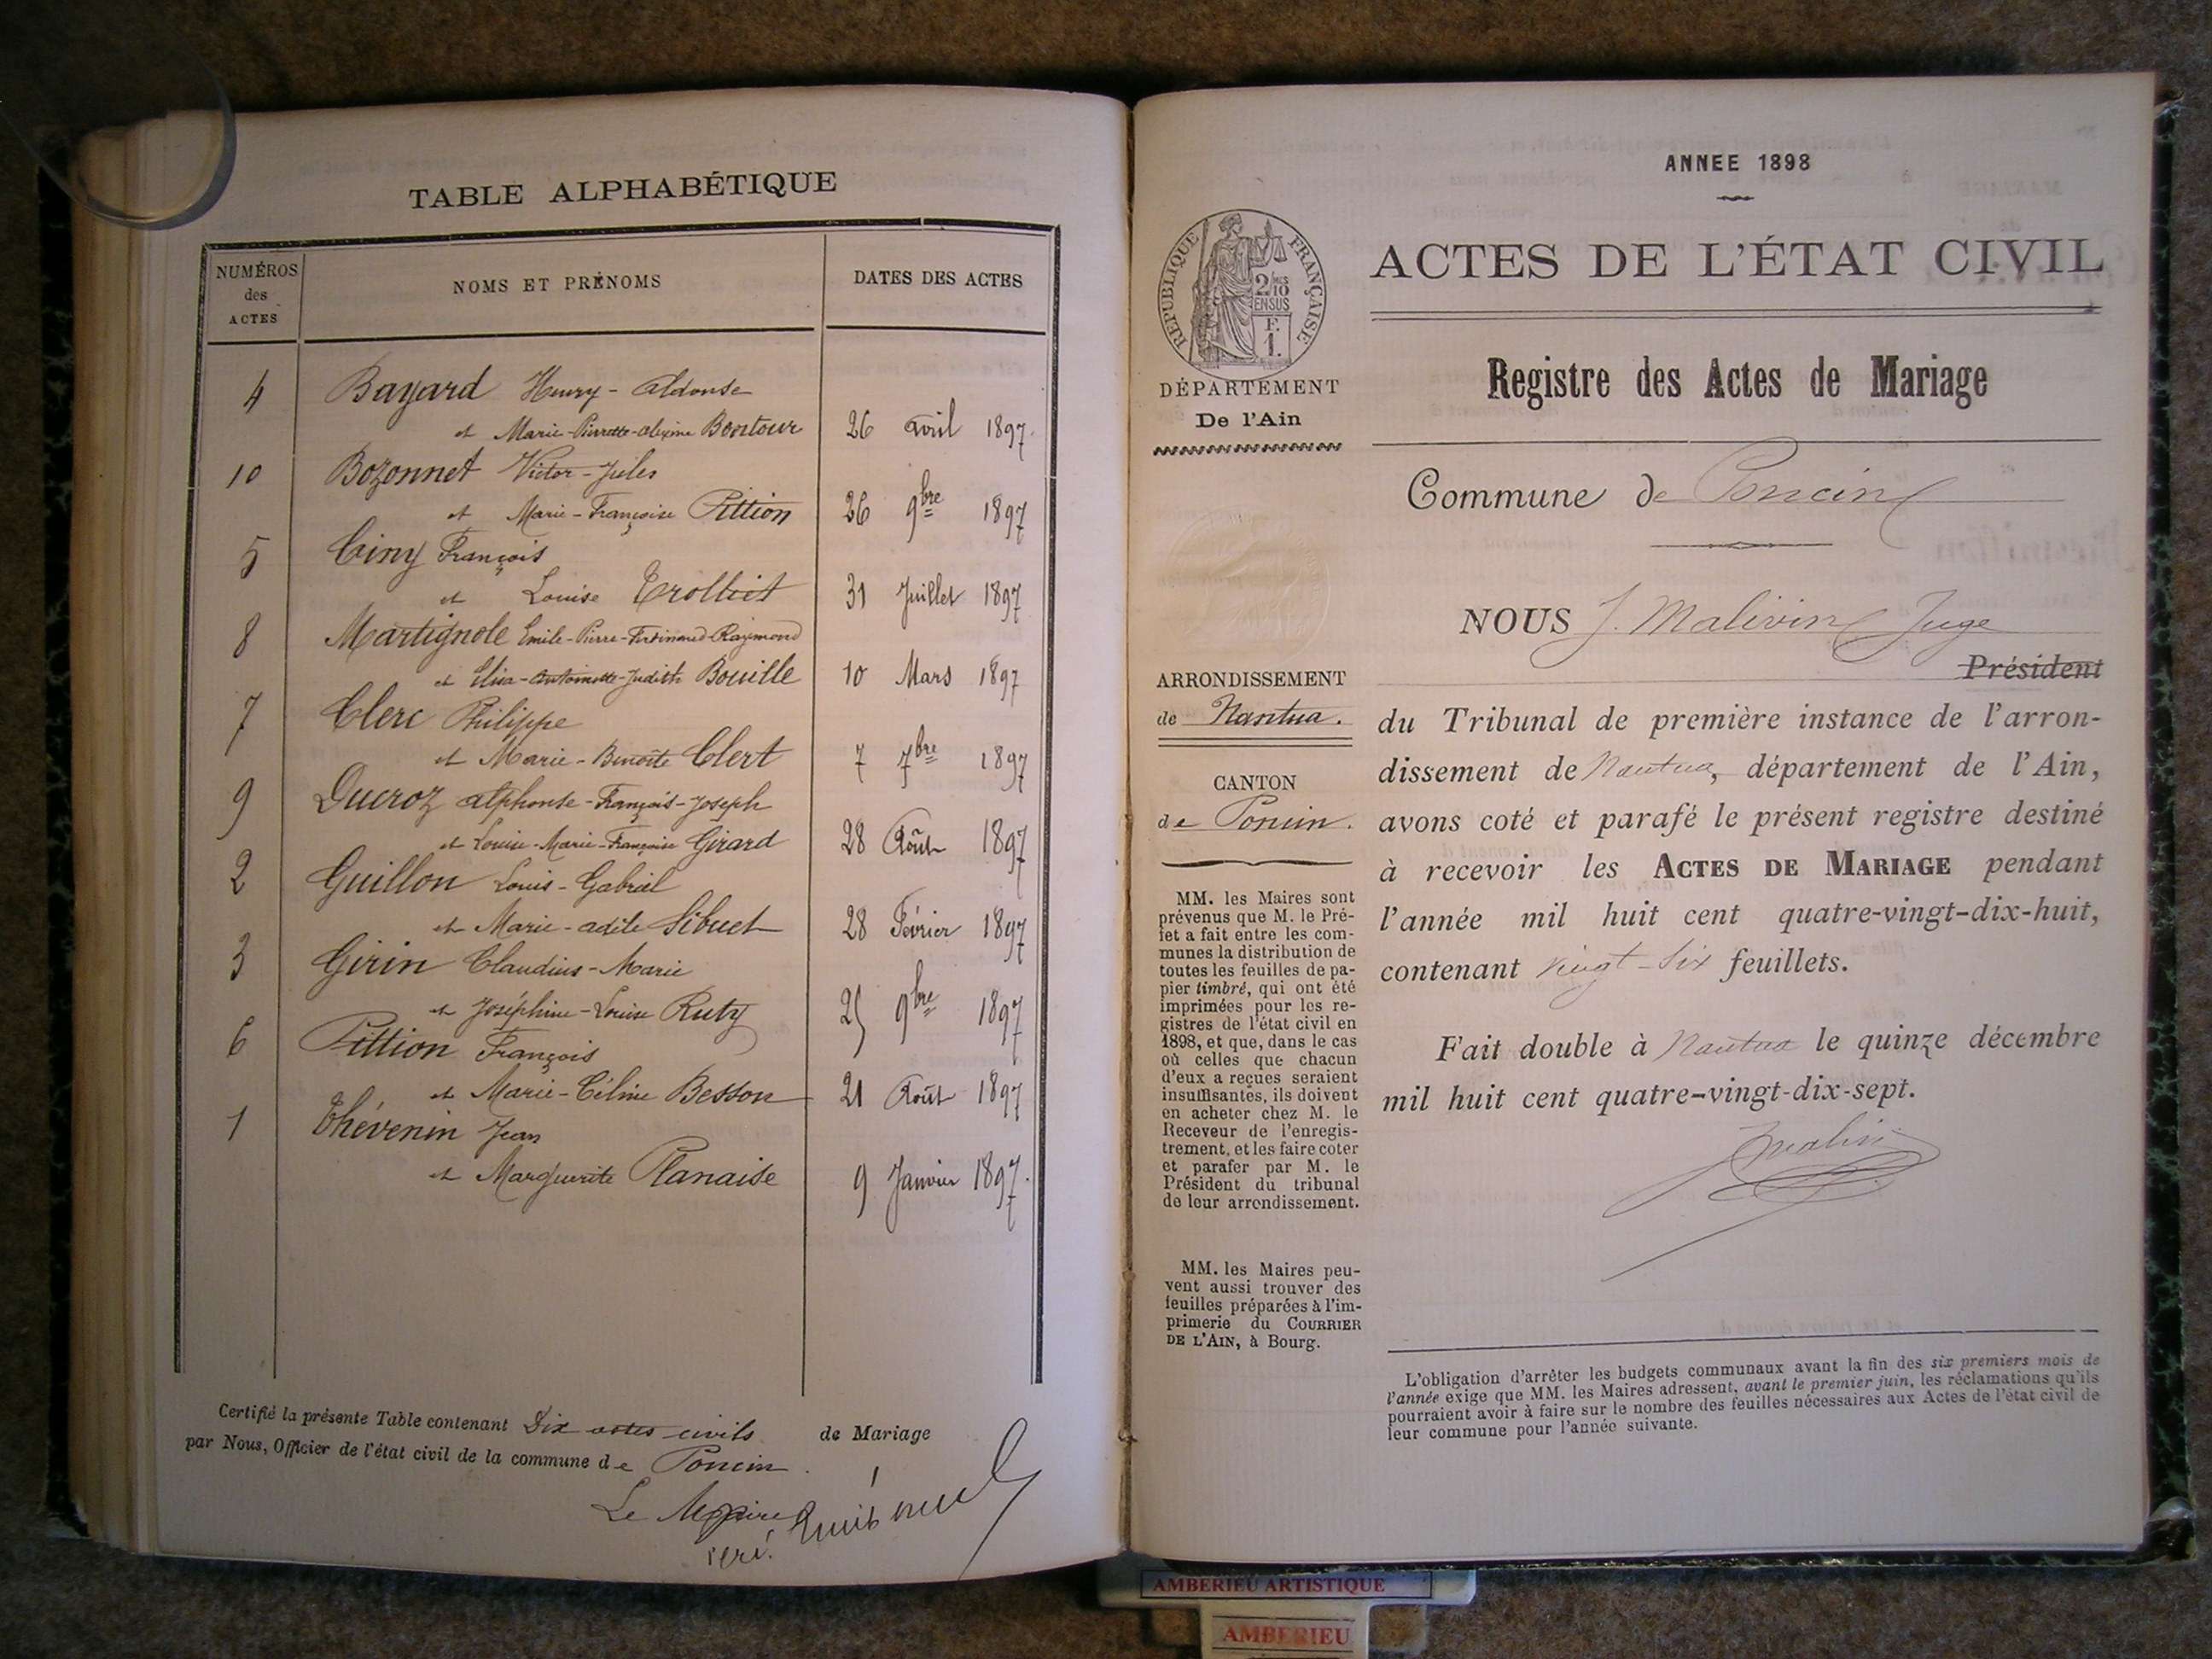 TABLE ALPHABÉTIQUE
NUMÉROS des ACTES NOMS ET PRÉNOMS DATES DES ACTES
4 Bayard Henry - Aldonse
et Marie-Pierrette-Alexine Bontour 26 Avril 1897.
10 Bozonnet Victor-Jules
et Marie-Françoise Pittion 26 9bre 1897
5 Ciny François
et Louise Trolliet 31 Juillet 1897
8 Martignole Emile-Pierre-Ferdinand-Raymond
et Elisa-Antoinette-Judith Bouille 10 Mars 1897
7 Clerc Philippe
et Marie-Benoîte Clert 7 7bre 1897
9 Ducroz Alphonse-François-Joseph
et Louise-Marie-Françoise Girard 28 Août 1897
2 Guillon Louis-Gabriel
et Marie-Adèle Sibuet 28 Février 1897
3 Girin Claudius-Marie
et Joséphine-Louise Ruty 25 9bre 1897
6 Pittion François
et Marie-Céline Besson 21 Août 1897
1 Thévenin Jean
et Marguerite Planaise 9 Janvier 1897.
Certifié la présente Table contenant Dix actes civils de Mariage
par Nous, Officier de l'état civil de la commune de Poncin.
Le Maire
ANNEE 1898
ACTES DE L'ÉTAT CIVIL
RÉPUBLIQUE FRANÇAISE
2/10
EN SUS
F.
1.
DÉPARTEMENT
De l'Ain
Registre des Actes de Mariage
Commune de Poncin
ARRONDISSEMENT
de Nantua.
CANTON
de Poncin.
MM. les Maires sont
prévenus que M. le Pré-
fet a fait entre les com-
munes la distribution de
toutes les feuilles de pa-
pier timbré, qui ont été
imprimées pour les re-
gistres de l'état civil en
1898, et que, dans le cas
où celles que chacun
d'eux a reçues seraient
insuffisantes, ils doivent
en acheter chez M. le
Receveur de l'enregis-
trement, et les faire coter
et parafer par M. le
Président du tribunal
de leur arrondissement.
MM. les Maires peu-
vent aussi trouver des
feuilles préparées à l'im-
primerie du COURRIER
DE L'AIN, à Bourg.
NOUS J. Malivin Juge
Président
du Tribunal de première instance de l'arron-
dissement de Nantua, département de l'Ain,
avons coté et parafé le présent registre destiné
à recevoir les ACTES DE MARIAGE pendant
l'année mil huit cent quatre-vingt-dix-huit,
contenant vingt-six feuillets.
Fait double à Nantua le quinze décembre
mil huit cent quatre-vingt-dix-sept.
L'obligation d'arrêter les budgets communaux avant la fin des six premiers mois de
l'année exige que MM. les Maires adressent, avant le premier juin, les réclamations qu'ils
pourraient avoir à faire sur le nombre des feuilles nécessaires aux Actes de l'état civil de
leur commune pour l'année suivante.
AMBERIEU ARTISTIQUE
AMBERIEU